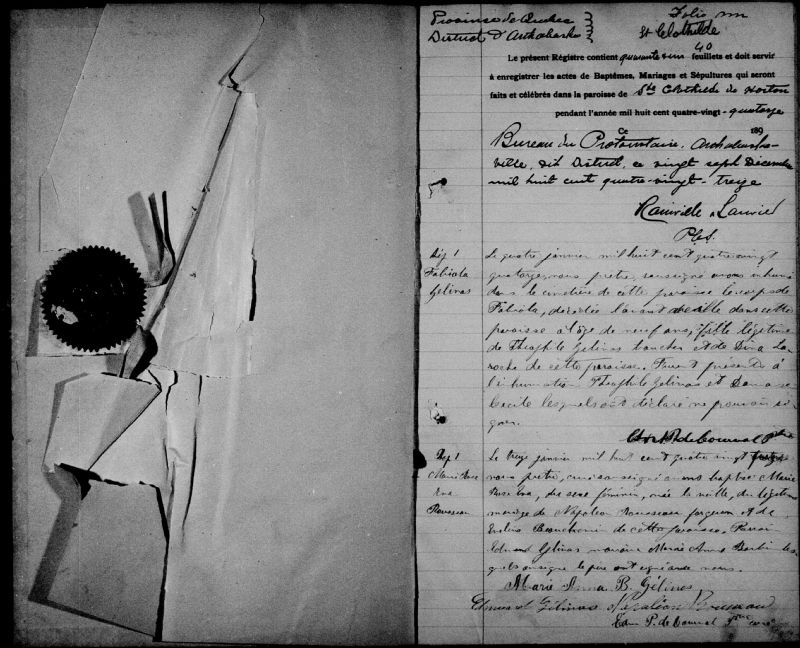 Province de Québec
District d'Arthabaska
Folio un
Ste Clothilde
Le présent Régistre contient quarante un 40 feuillets et doit servir
à enregistrer les actes de Baptêmes, Mariages et Sépultures qui seront
faits et célébrés dans la paroisse de Ste Clothilde de Horton
pendant l'année mil huit cent quatre-vingt-quatorze
Ce 189
Bureau du Protonotaire, Arthabaska-
ville, dit District, ce vingt sept Décembre
mil huit cent quatre-vingt-treize
Rainville & Laurier
P.C.S.
1
Fabiola
Gélinas
Le quatre janvier mil huit cent quatre vingt
quatorze, nous prêtre, soussigné avons inhumé
dans le cimetière de cette paroisse le corps de
Fabiola, décédée l'avant veille dans cette
paroisse à l'âge de neuf ans, fille légitime
de Théophile Gélinas boucher et de Dina La-
roche de cette paroisse. Furent présents à
l'inhumation Théophile Gélinas et
Cecile lesquels ont déclaré ne pouvoir si-
gner.
1
Marie Rose
Eva
Rousseau
Le treize janvier mil huit cent quatre vingt
nous prêtre, curé soussigné avons baptisé Marie
Rose Eva, du sexe féminin, née la veille, du légitime
mariage de Napoléon Rousseau forgeron et de
de cette paroisse. Parrain
Edmond Gélinas marraine Marie Anna les-
quels ainsi que le père ont signé avec nous.
Marie Anna B. Gélinas
Edmond Gélinas Napoléon Rousseau
P. de Courval Ptre curé